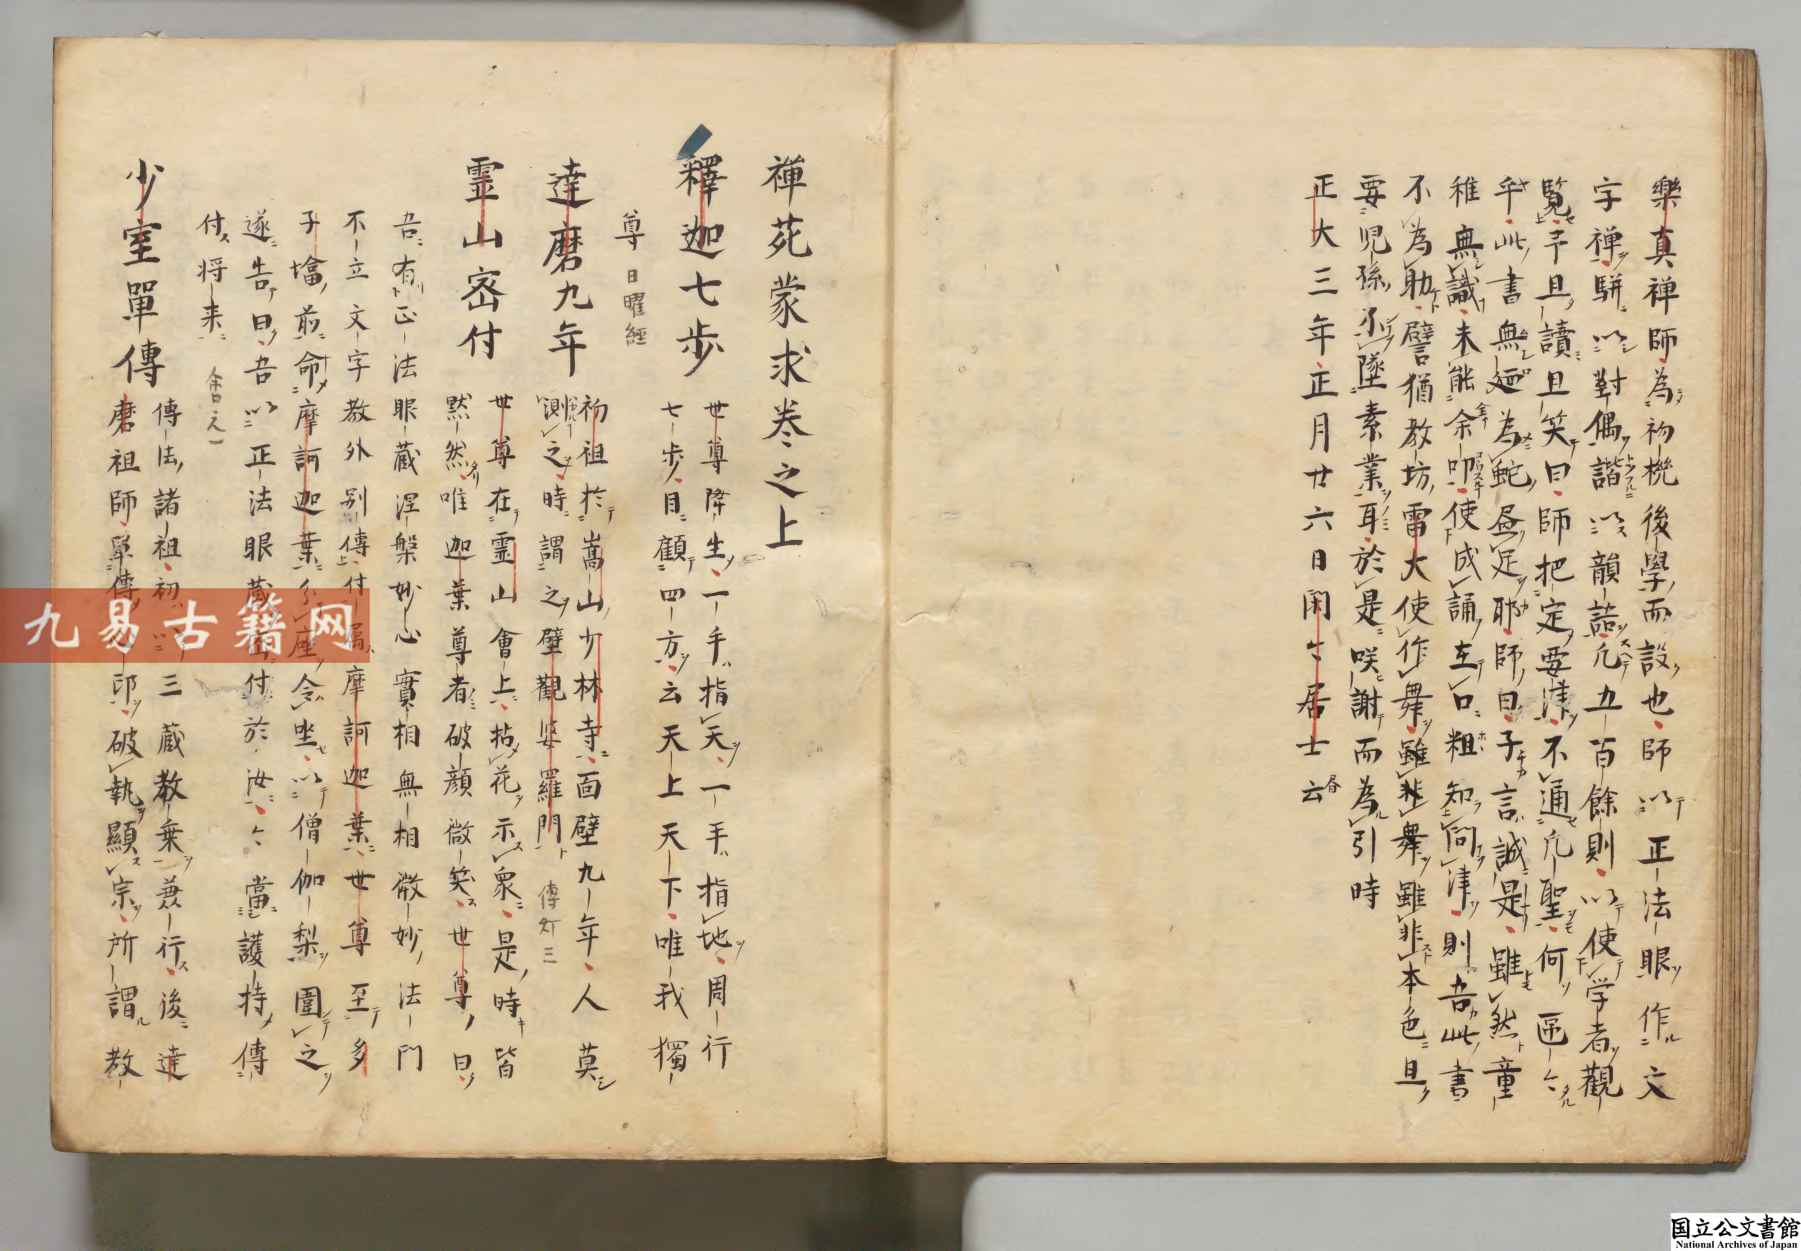 樂真禅師為初機後學而設也師以正法眼作文
字禅駢以對偶諧以韻語凡五百餘則以使学者觀
覧予且讀且笑曰師把定要津不通凡聖何區々
乎此書無廼為蛇畫足耶師曰子言誠是雖然童
稚無識未能余叩使成誦在口粗知問津則吾此書
不為助譬猶教坊雷大使作舞雖非舞雖非本色且
要児孫不墜素業耳於是咲謝而為引時
正大三年正月廿六日閑々居士云
禅苑蒙求巻之上
釋迦七歩
世尊降生一手指天一手指地周行
七歩目顧四方云天上天下唯我獨
尊 日曜經
達磨九年
初祖於嵩山少林寺面壁九年人莫
測之時謂之壁觀婆羅門 傳灯三
霊山密付
世尊在霊山會上拈花示衆是時皆
黙然唯迦葉尊者破顔微笑世尊曰
吾有正法眼蔵涅槃妙心實相無相微妙法門
不立文字教外別傳付属摩訶迦葉世尊至多
子塔前命摩訶迦葉分座令坐以僧伽梨圍之
遂告曰吾以正法眼蔵密付於汝々當護持傳
付将来 會元一
少室單傳
傳法諸祖初以三蔵教乗兼行後達
磨祖師單傳心印破執顯宗所謂教
九易古籍网
国立公文書館
National Archives of Japan